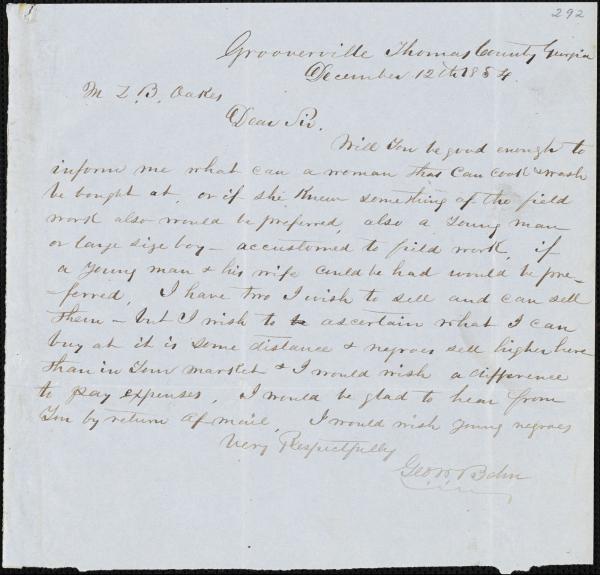 292
Grooverville Thomas County Georgia
December 12th 1854.
M Z. B. Oakes
Dear Sir.
Will You be good enough to
inform me what can a woman that can cook & wash
be bought at, or if she knew something of the field
work also would be preferred, also a Young man
or large size boy - accustomed to field work, if
a Young man & his wife could be had would be pre-
-ferred, I have two I wish to sell and can sell
them - but I wish to ascertain what I can
buy at it is some distance & negroes sell higher here
than in Your market & I would wish a difference
to pay expenses, I would be glad to hear from
You by return of mail, I would wish young negroes
Very Respectfully
Geo W Behn